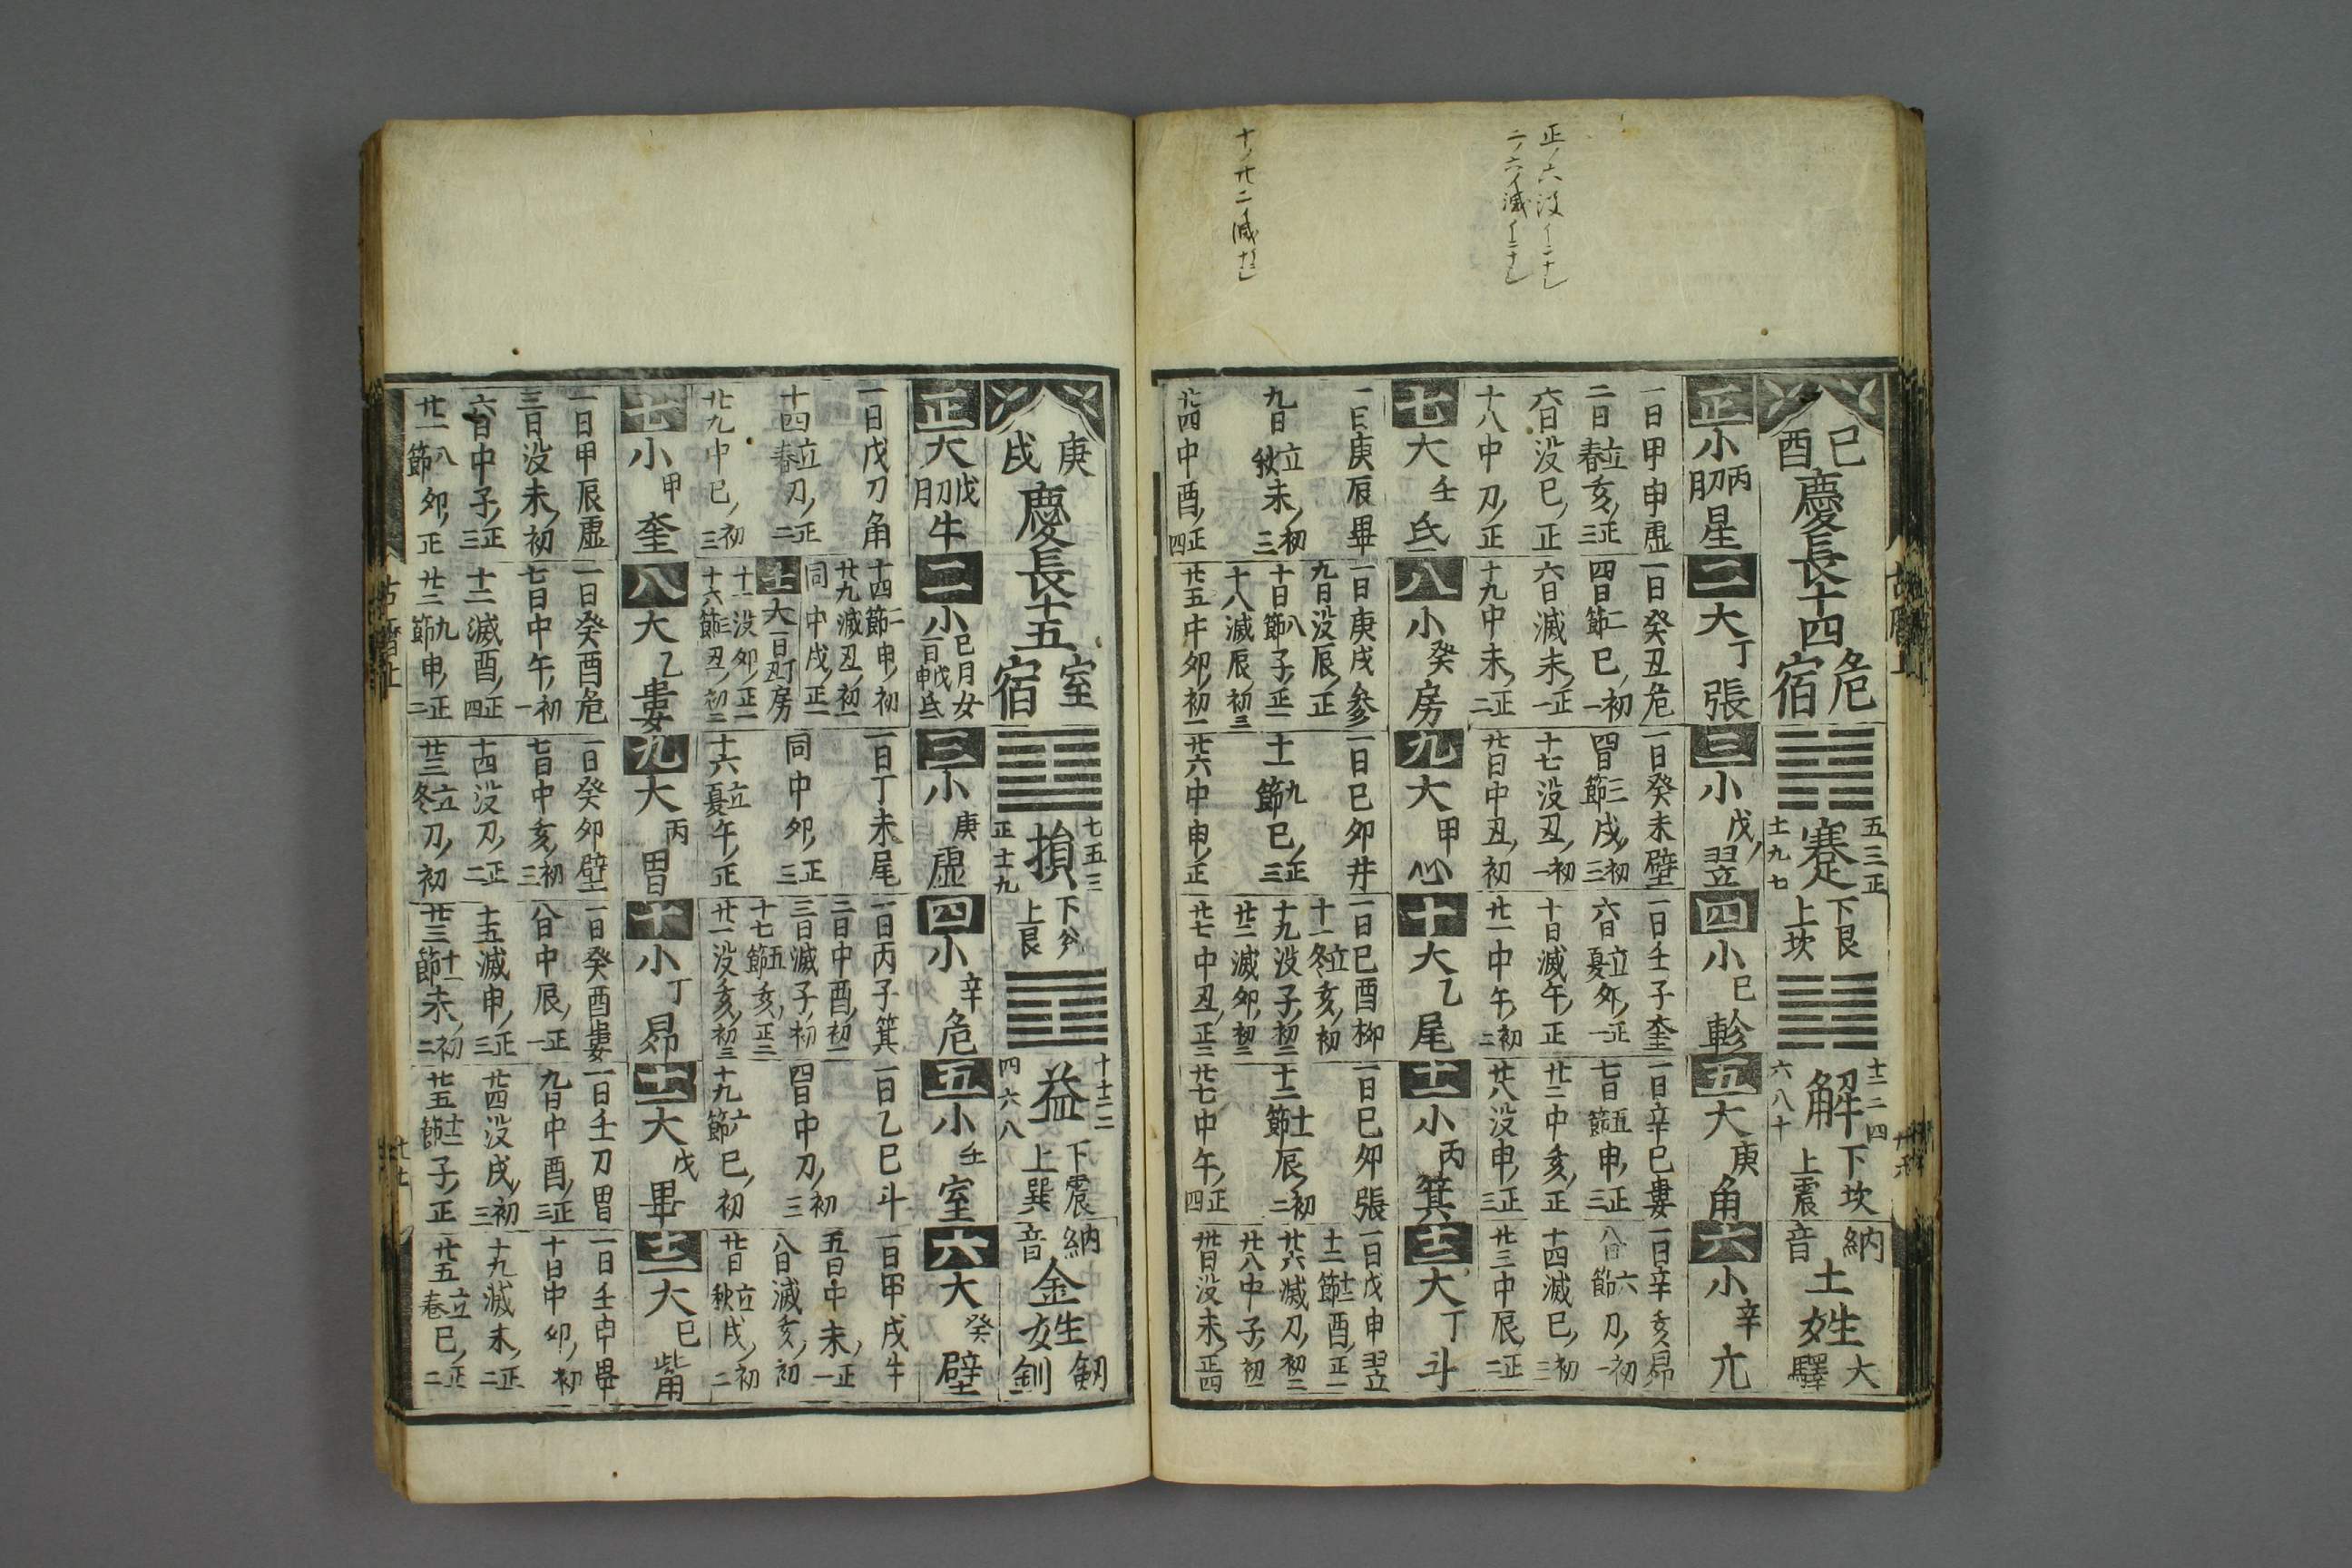 正ノ六没イニナシ
二ノ六ノ滅イニナシ
十ノ廿二滅
己酉
慶長十四
危宿
蹇
五三正
十一九七
下艮
上坎
解
十二二四
六八十
下坎
上震
納音
土姓
大驛
正
小
丙月刃
星
一日甲申虚
二日立春亥正三
六日没巳正
十八中刀正
二
大
丁
張
一日癸丑危
四日二節巳初一
六日滅未正一
十九中未正二
三
小
戊
翌
一日癸未壁
四日三節戌初三
十七没丑初一
廿日中丑初
四
小
己
軫
一日壬子奎
六日立夏夘正一
十日滅午正
廿一中午初二
五
大
庚
角
一日辛巳婁
七日五節申正三
廿二中亥正
廿八没申正三
六
小
辛
亢
一日辛亥昴
八日六節刀初一
十四滅巳初三
廿三中辰正二
七
大
壬
氐
一日庚辰畢
九日立秋未初三
廿四中酉正四
八
小
癸
房
一日庚戌參
九日没辰正
十日八節子正一
十八滅辰初三
廿五中夘初一
九
大
甲
心
一日己夘井
十一九節巳正三
廿六中申正
十
大
乙
尾
一日己酉柳
十一立冬亥初
十九没子初二
廿二滅夘初三
廿七中丑正二
十一
小
丙
箕
一日己夘張
十二十一節辰初二
廿七中午正四
十二
大
丁
斗
一日戊申翌
十二十二節酉正一
廿六滅刀初二
廿八中子初一
卅日没未正四
庚戌
慶長十五
室宿
損
七五三
正十一九
下兊
上艮
益
十十二二
四六八
下震
上巽
納音
金姓
釼釧
正
大
戊月刃
牛
一日戊刀角
十四立春刀正二
廿九中巳初三
二
小
己月女
一日戊申氐
十四二節申初
廿九滅丑初一
同中戌正一
十二
大
一日丁丑房
十一没夘正一
十六三節丑初二
三
小
庚
虚
一日丁未尾
同中夘正三
十六立夏午正
四
小
辛
危
一日丙子箕
二日中酉初二
三日滅子初
十七五節亥正三
廿一没亥初三
五
小
壬
室
一日乙巳斗
四日中刀初三
十九六節巳初
六
大
癸
壁
一日甲戌牛
五日中未正一
八日滅亥初
廿日立秋戌初二
七
小
甲
奎
一日甲辰虚
三日没未初
六日中子正三
廿一八節夘正
八
大
乙
婁
一日癸酉危
七日中午初一
十二滅酉正四
廿二九節申正二
九
大
丙
胃
一日癸夘壁
七日中亥初三
十四没刀正二
廿三立冬刀初
十
小
丁
昴
一日癸酉婁
八日中辰正一
十五滅申正三
廿三十一節未初二
十一
大
戊
畢
一日壬刀胃
九日中酉正三
廿四没戌初三
廿五十二節子正
十二
大
己
觜
一日壬申畢
十日中夘初
十九滅未正二
廿五立春巳正二